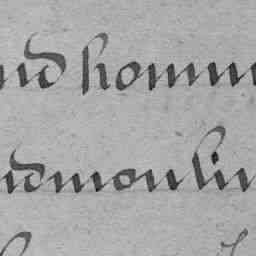 nd homm
ndmoulin